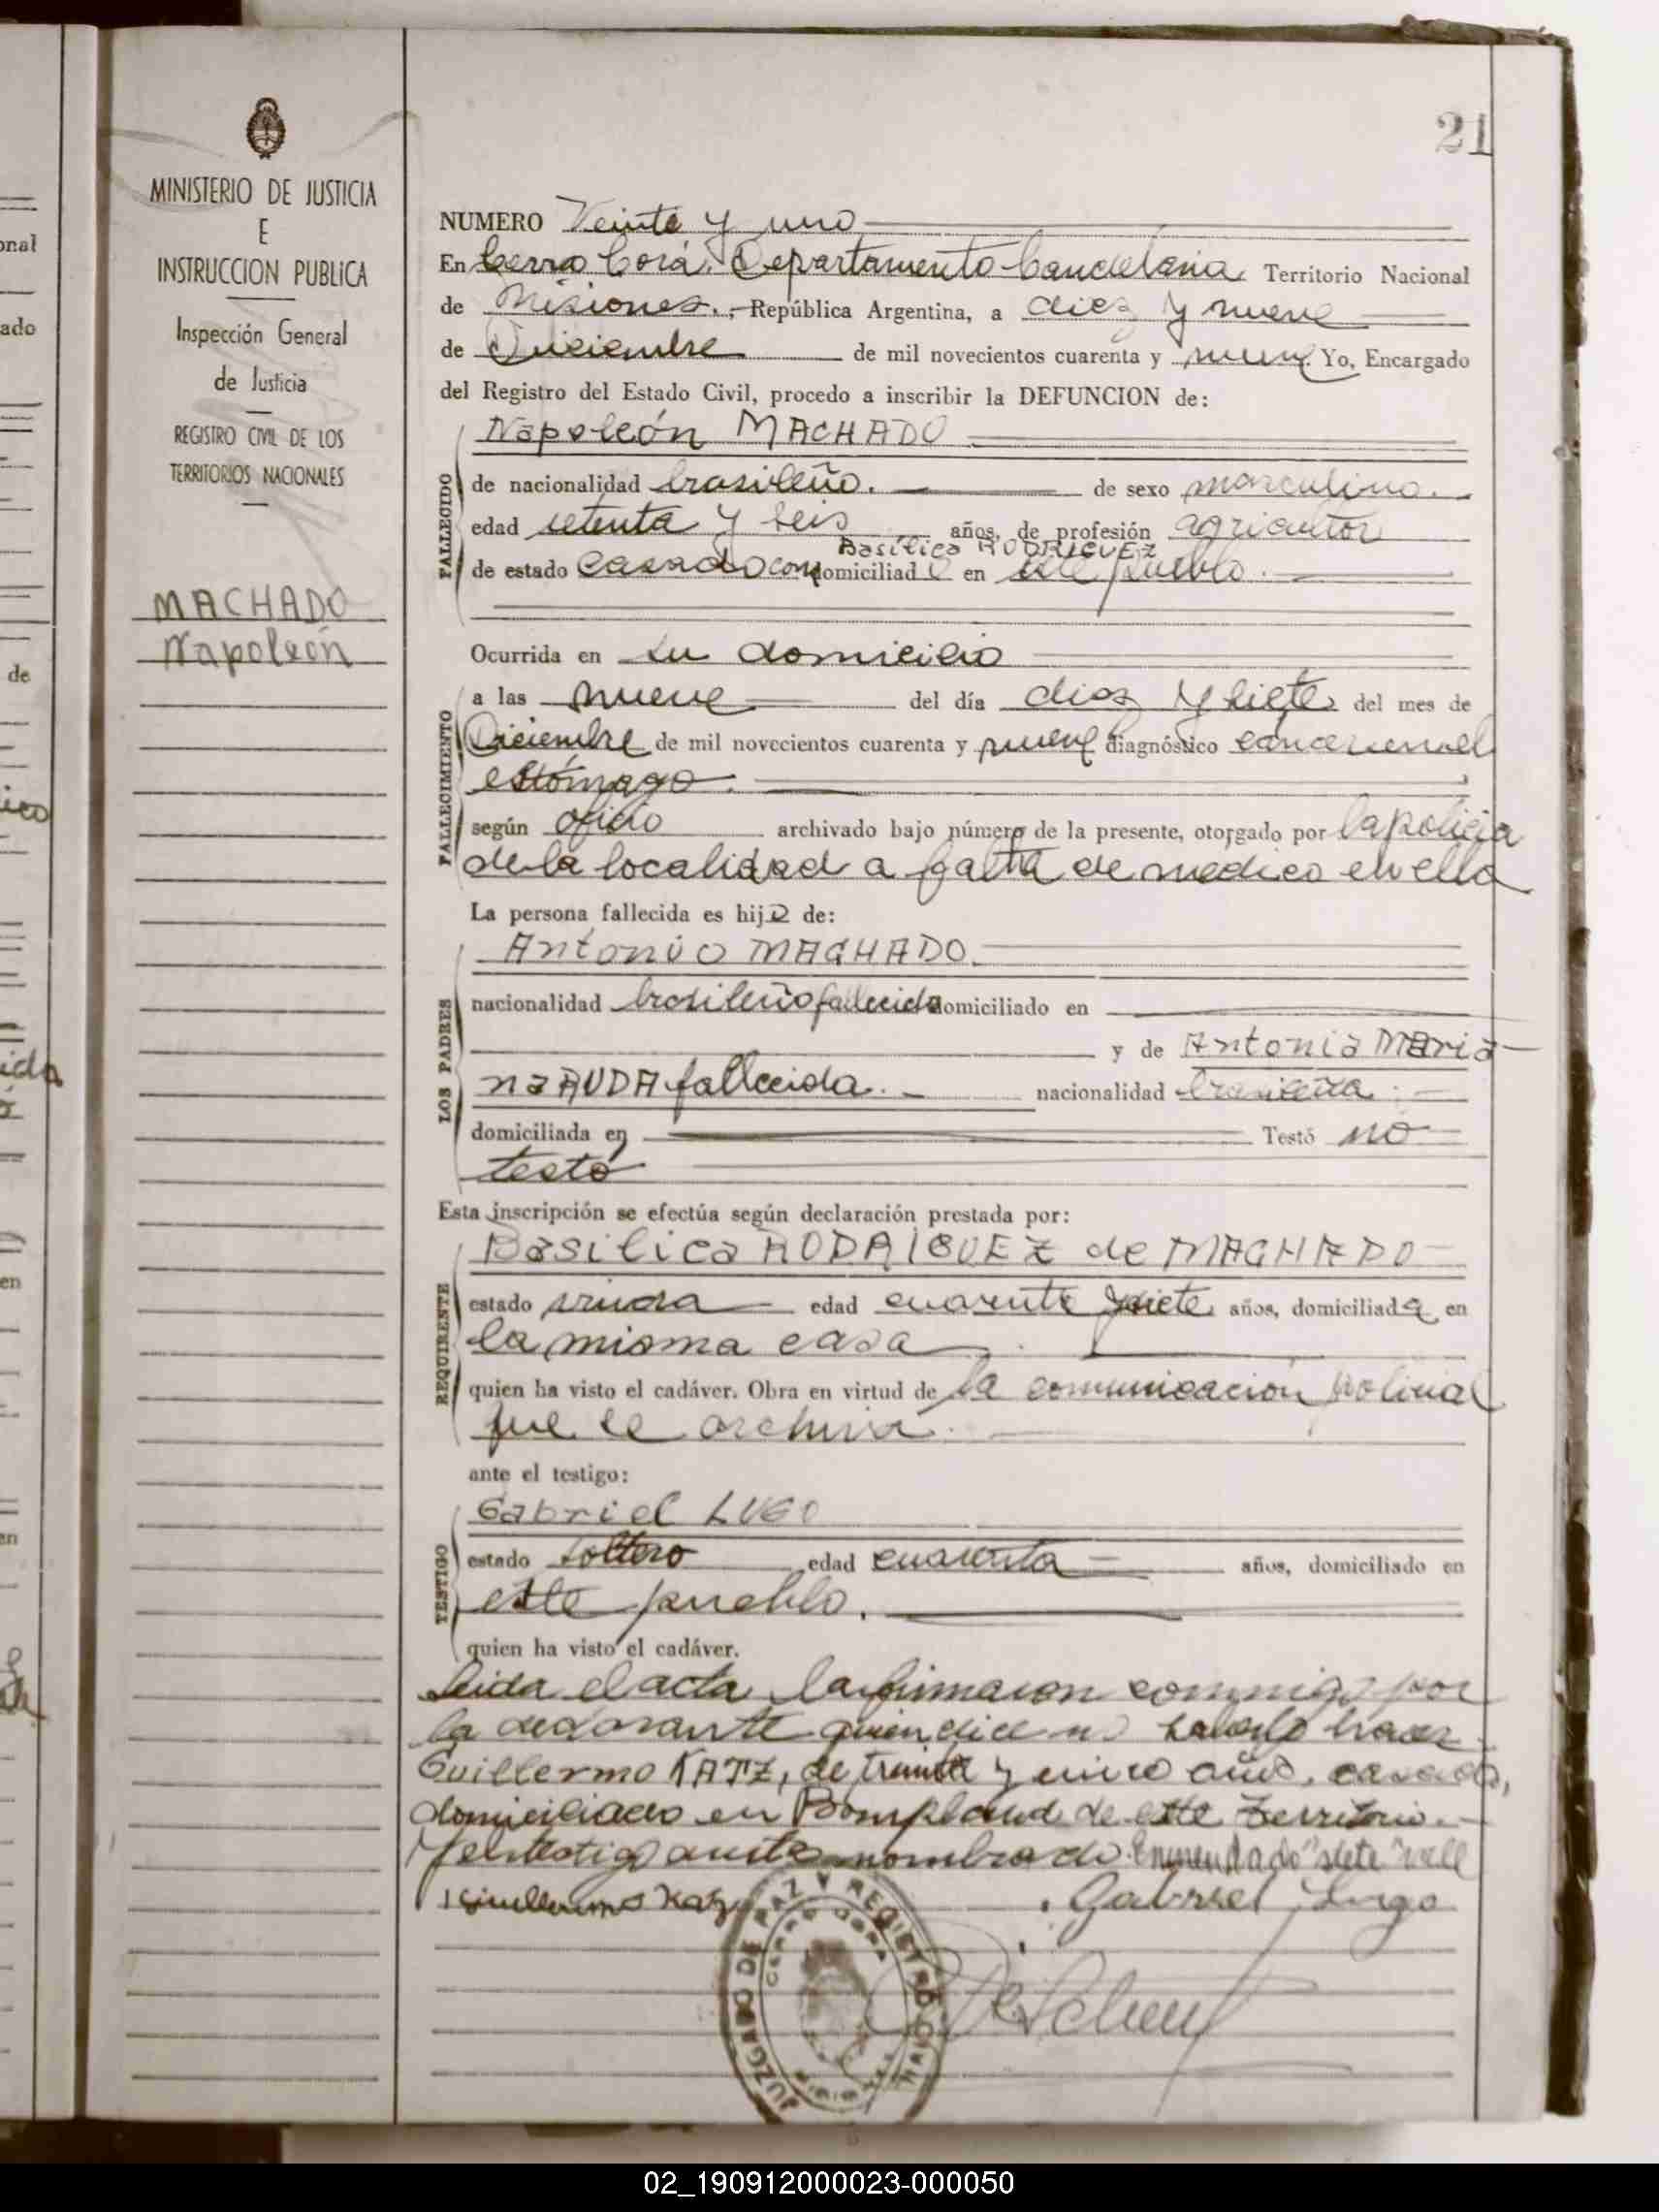 21
MINISTERIO DE JUSTICIA
E
INSTRUCCION PUBLICA
Inspección General
de Justicia
REGISTRO CIVIL DE LOS
TERRITORIOS NACIONALES
MACHADO
Napoleón
NUMERO Veinte y uno
En Cerro Corá. Departamento Candelaria Territorio Nacional
de Misiones. República Argentina, a diez y nueve
de Diciembre de mil novecientos cuarenta y nueve. Yo, Encargado
del Registro del Estado Civil, procedo a inscribir la DEFUNCION de:
FALLECIDO
Napoleón MACHADO
de nacionalidad brasileño. de sexo masculino.
edad setenta y seis años, de profesión agricultor
Basílica RODRIGUEZ
de estado casado con domiciliado en este pueblo.
Ocurrida en su domicilio
FALLECIMIENTO
a las nueve del día diez y siete del mes de
Diciembre de mil novecientos cuarenta y nueve diagnóstico cancer en el
estómago.
según oficio archivado bajo número de la presente, otorgado por la policia
de la localidad a falta de medico en ella
La persona fallecida es hijo de:
LOS PADRES
Antonio MACHADO.
nacionalidad brasileño fallecido domiciliado en
y de Antonia Maria
na RUDA fallecida. nacionalidad brasileña.
domiciliada en Testó no
testó
Esta inscripción se efectúa según declaración prestada por:
REQUIRENTE
Basilica RODRIGUEZ de MACHADO
estado viuda edad cuarenta y siete años, domiciliada en
la misma casa
quien ha visto el cadáver. Obra en virtud de la comunicación policial
que se archiva.
ante el testigo:
TESTIGO
Gabriel LUGO
estado soltero edad cuarenta años, domiciliado en
este pueblo.
quien ha visto el cadáver.
Leida el acta la firmaron conmigo por
la declarante quien dice no saberlo hacer
Guillermo KATZ, de treinta y cinco años, casado,
domiciliado en Bompland de este Territorio.
Y el testigo antes nombrado. Enmendado "siete" vale
Guillermo Katz
Gabriel Lugo
JUZGADO DE PAZ Y REGISTRO CIVIL
CERRO CORA
MISIONES
02_190912000023-000050